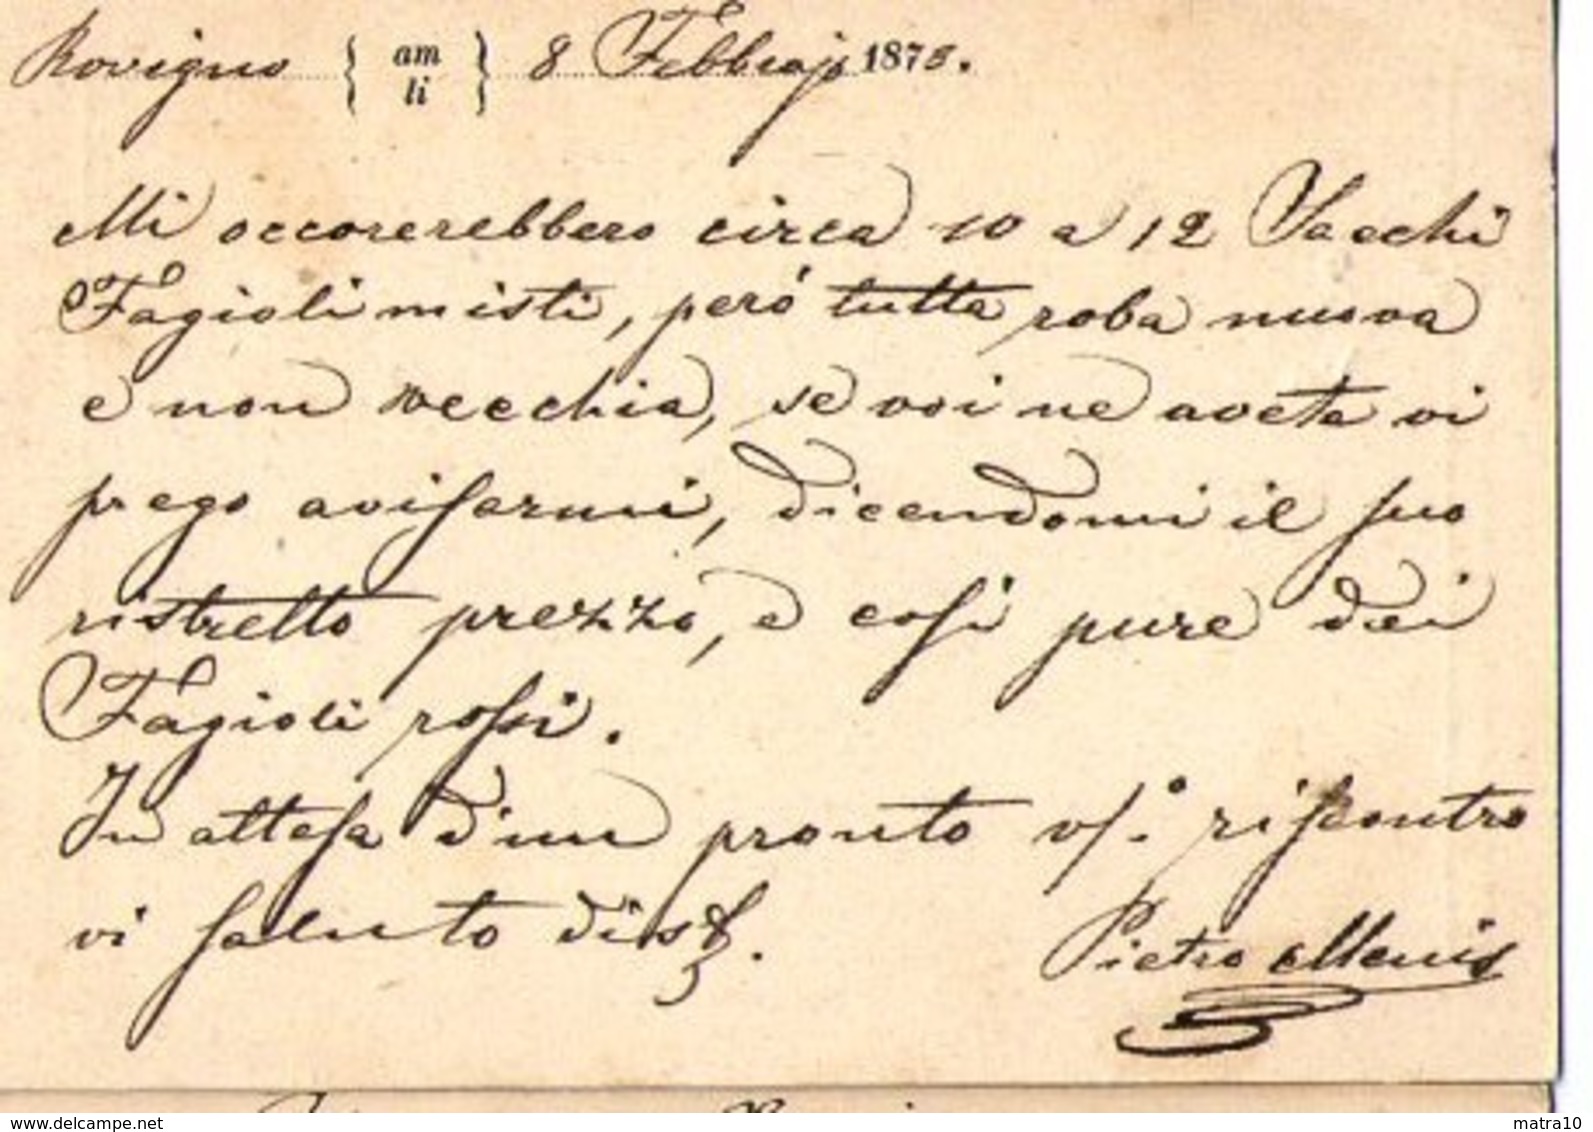 Rovigno { am } 8 Febbrajo 1875.
li
Mi occorerebbero circa 10 a 12 Sacchi
Fagioli misti, peró tutta roba nuova
e non vecchia, se voi ne avete vi
prego avisarmi, dicendomi il suo
ristretto prezzo, e cosi pure dei
Fagioli rossi.
In attesa d'un pronto vs.° riscontro
vi saluto dist.
Pietro Menis
www.delcampe.net
matra10